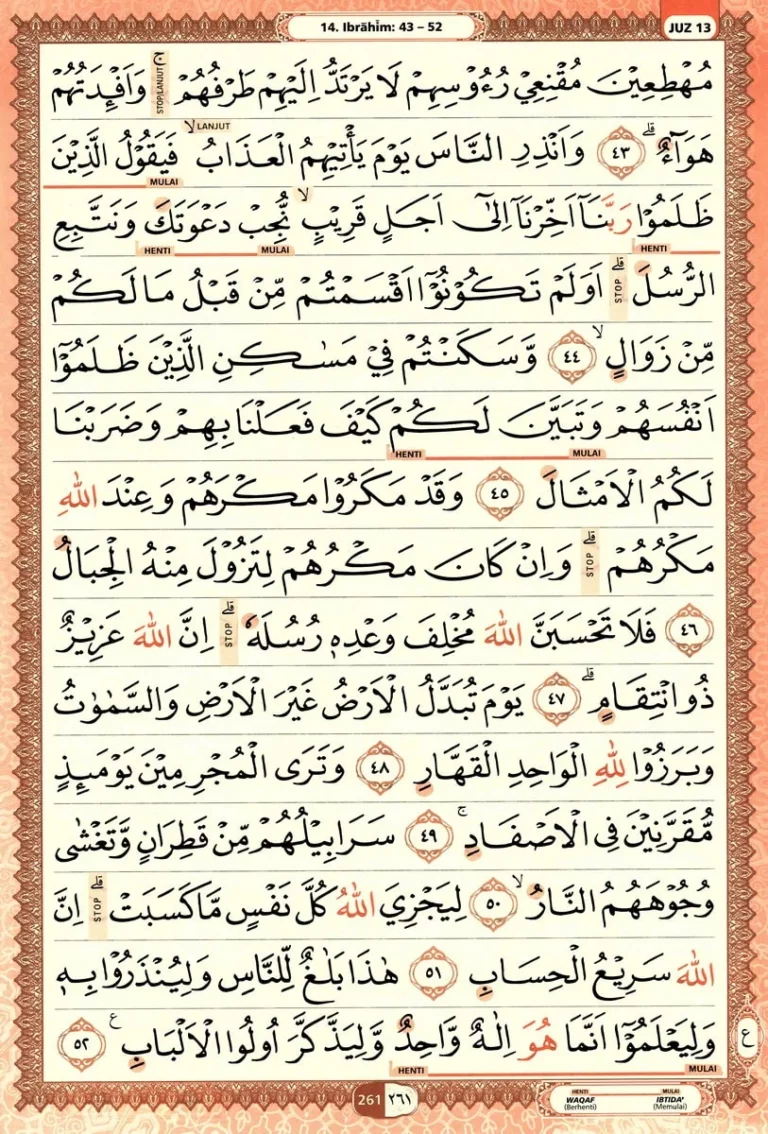 14. Ibrāhīm: 43 – 52
JUZ 13
مُهْطِعِيْنَ مُقْنِعِيْ رُءُوْسِهِمْ لَا يَرْتَدُّ اِلَيْهِمْ طَرْفُهُمْ ۚ STOP/LANJUT وَاَفْـِٕدَتُهُمْ
هَوَاۤءٌ ۗ ٤٣ وَاَنْذِرِ النَّاسَ يَوْمَ يَأْتِيْهِمُ الْعَذَابُ ۙ LANJUT فَيَقُوْلُ الَّذِيْنَ
MULAI
ظَلَمُوْا رَبَّنَآ اَخِّرْنَآ اِلٰٓى اَجَلٍ قَرِيْبٍ ۙ نُّجِبْ دَعْوَتَكَ وَنَتَّبِعِ
HENTI MULAI HENTI
الرُّسُلَ ۗ STOP اَوَلَمْ تَكُوْنُوْٓا اَقْسَمْتُمْ مِّنْ قَبْلُ مَا لَكُمْ
مِّنْ زَوَالٍ ۙ ٤٤ وَّسَكَنْتُمْ فِيْ مَسٰكِنِ الَّذِيْنَ ظَلَمُوْٓا
اَنْفُسَهُمْ وَتَبَيَّنَ لَكُمْ كَيْفَ فَعَلْنَا بِهِمْ وَضَرَبْنَا
HENTI MULAI
لَكُمُ الْاَمْثَالَ ٤٥ وَقَدْ مَكَرُوْا مَكْرَهُمْ وَعِنْدَ اللّٰهِ
مَكْرُهُمْ ۗ STOP وَاِنْ كَانَ مَكْرُهُمْ لِتَزُوْلَ مِنْهُ الْجِبَالُ
٤٦ فَلَا تَحْسَبَنَّ اللّٰهَ مُخْلِفَ وَعْدِهٖ رُسُلَهٗ ۗ STOP اِنَّ اللّٰهَ عَزِيْزٌ
ذُو انْتِقَامٍ ۗ ٤٧ يَوْمَ تُبَدَّلُ الْاَرْضُ غَيْرَ الْاَرْضِ وَالسَّمٰوٰتُ
وَبَرَزُوْا لِلّٰهِ الْوَاحِدِ الْقَهَّارِ ٤٨ وَتَرَى الْمُجْرِمِيْنَ يَوْمَىِٕذٍ
مُّقَرَّنِيْنَ فِى الْاَصْفَادِ ۚ ٤٩ سَرَابِيْلُهُمْ مِّنْ قَطِرَانٍ وَّتَغْشٰى
وُجُوْهَهُمُ النَّارُ ۙ ٥٠ لِيَجْزِيَ اللّٰهُ كُلَّ نَفْسٍ مَّا كَسَبَتْ ۗ STOP اِنَّ
اللّٰهَ سَرِيْعُ الْحِسَابِ ٥١ هٰذَا بَلٰغٌ لِّلنَّاسِ وَلِيُنْذَرُوْا بِهٖ
وَلِيَعْلَمُوْٓا اَنَّمَا هُوَ اِلٰهٌ وَّاحِدٌ وَّلِيَذَّكَّرَ اُولُوا الْاَلْبَابِ ࣖ ٥٢
HENTI MULAI
ع
261 ٢٦١
HENTI MULAI
WAQAF IBTIDA'
(Berhenti) (Memulai)